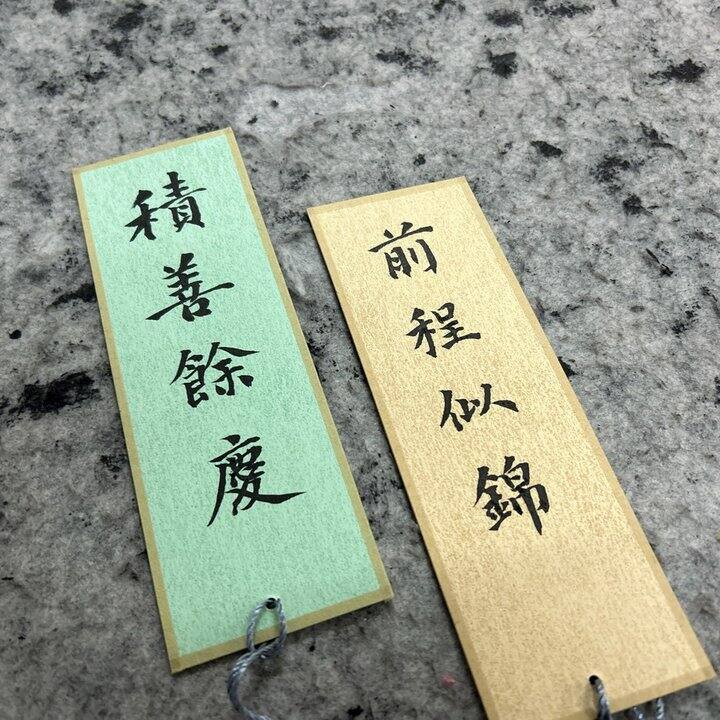 積善餘慶
前程似錦